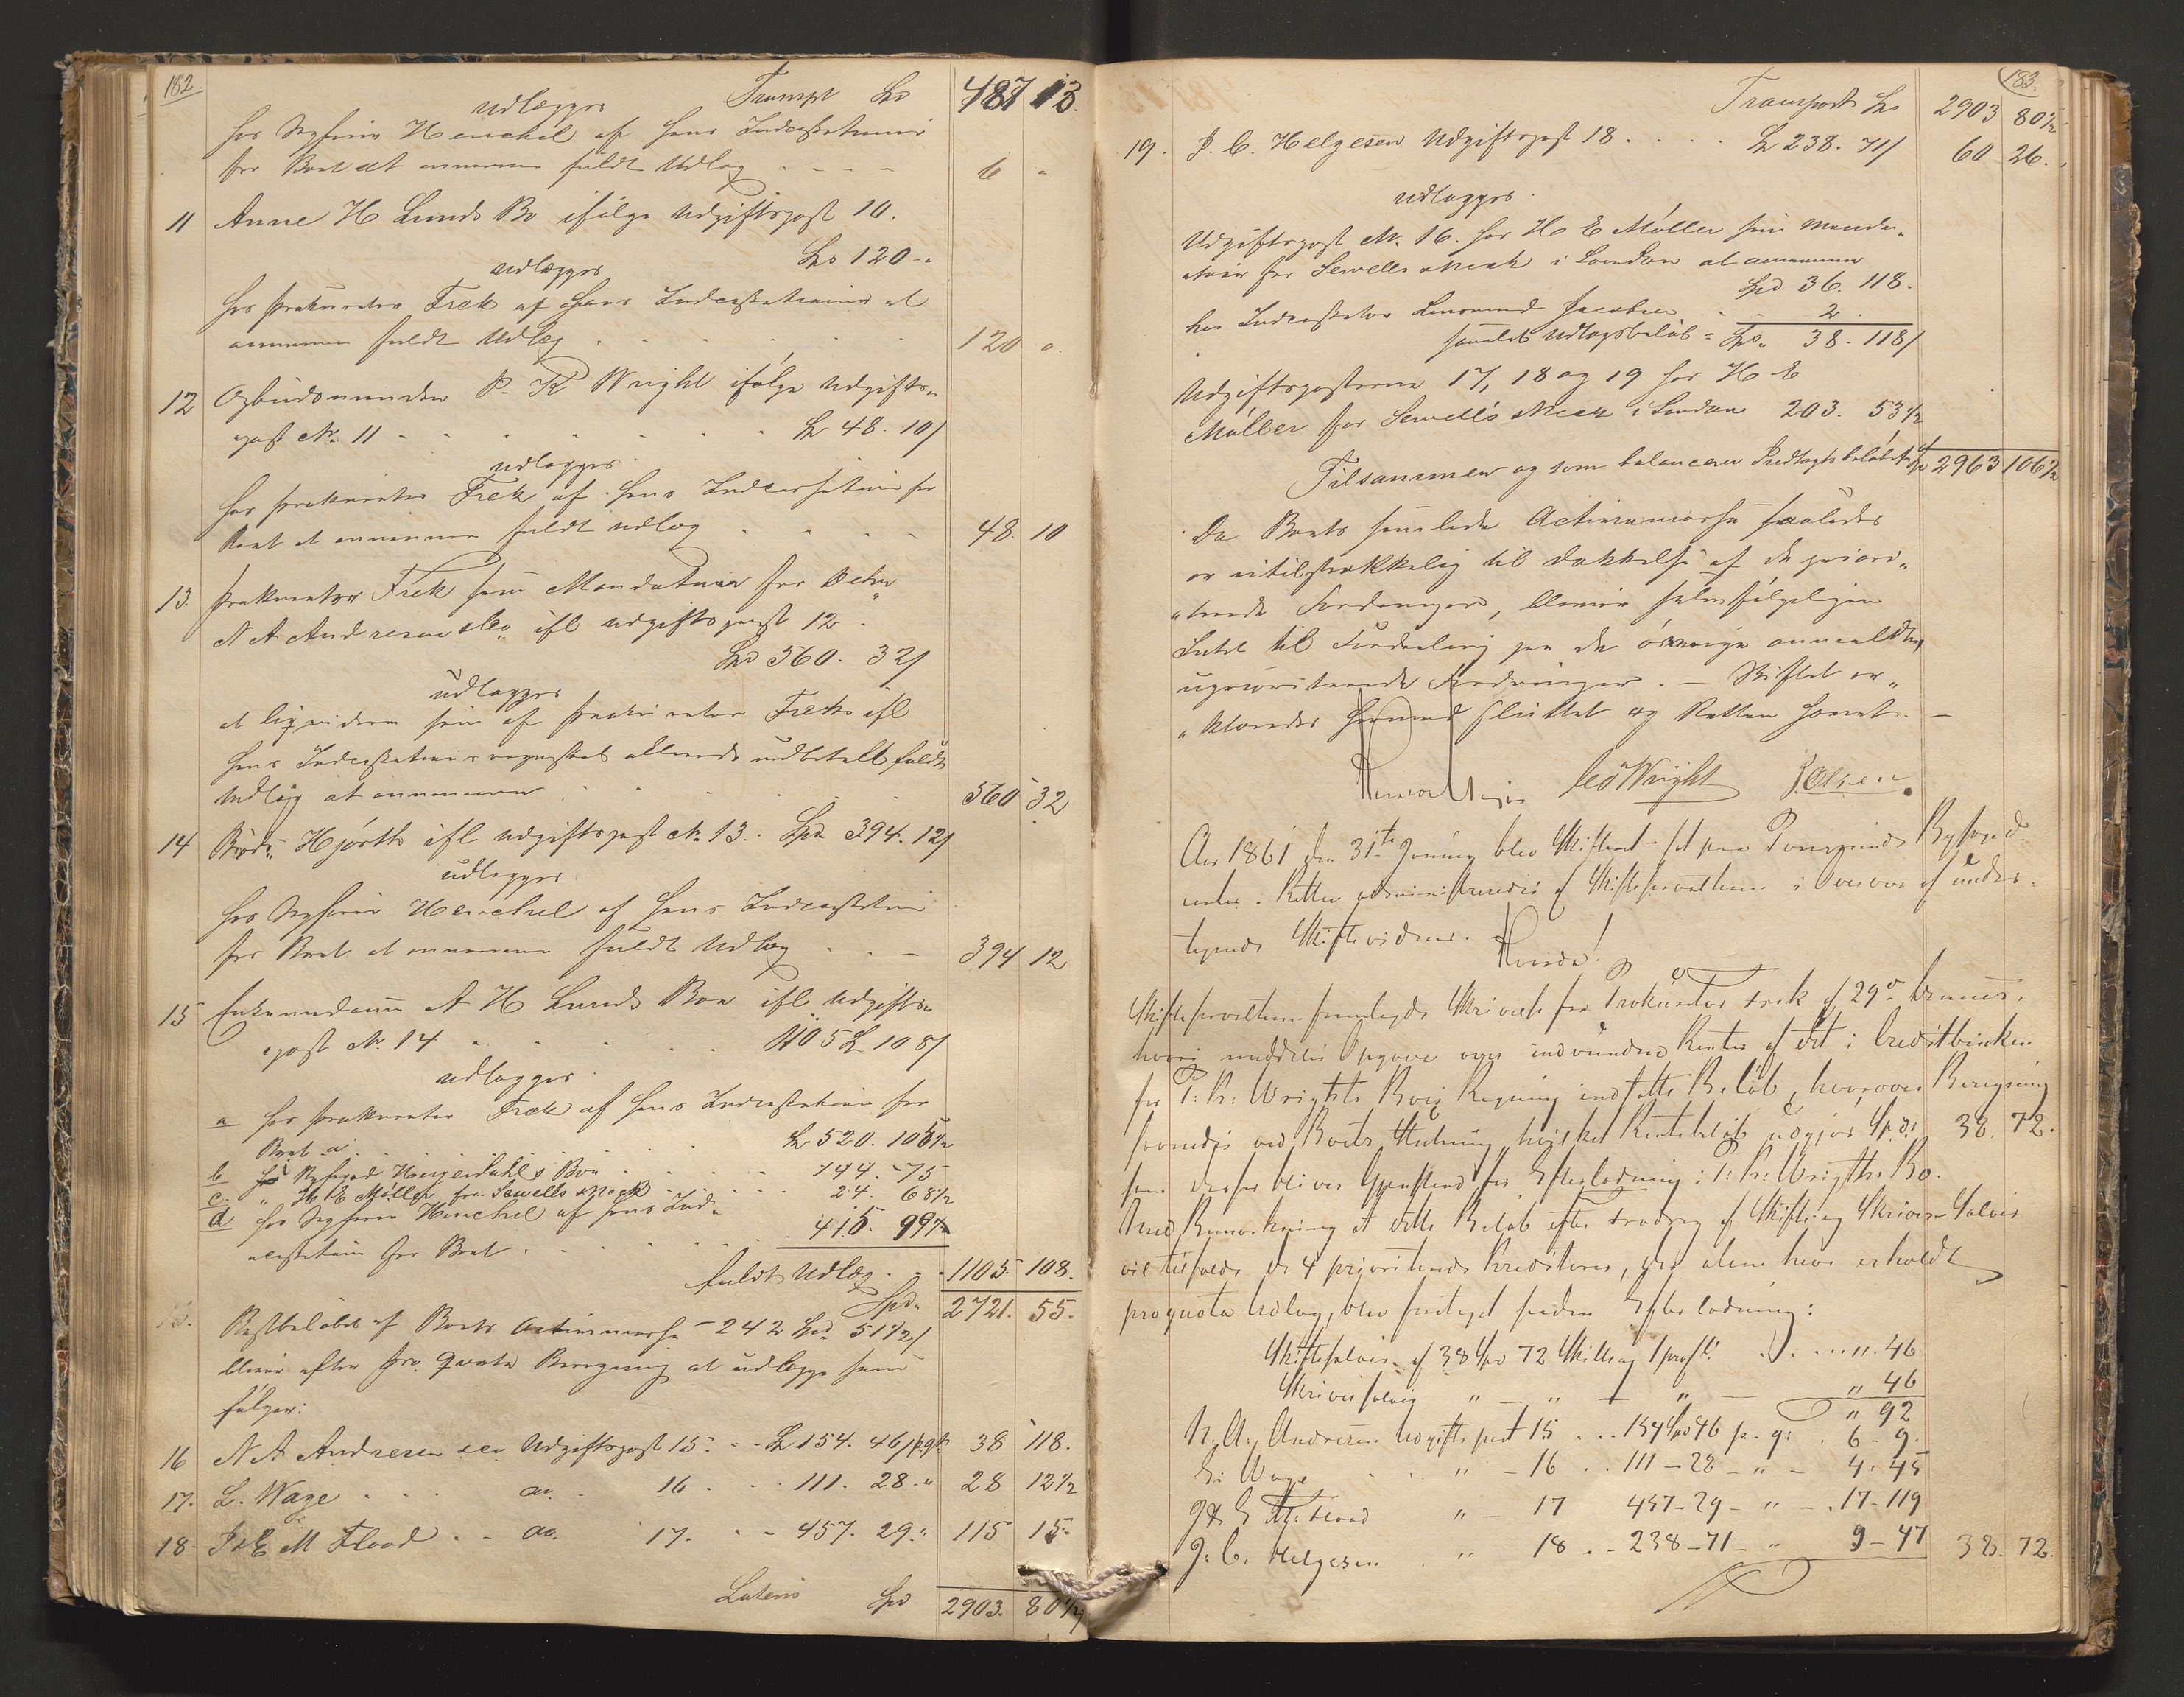 182
Transpt Spd 487 13.
udlægges
hos Sagfører Henchel af hans Indcassationer
for Boet at annamme fuldt Udlæg - - - - 6 "
11 Anne H Lunds Bo ifølge Udgiftspost 10.
Spd 120 - "
udlægges
hos Prokurator Frek af hans Indcassationer at
annamme fuldt Udlæg . . . . . 120 "
12 Ombudsmanden P. K Wright ifølge Udgifts-
post No. 11 - - - - - Sp 48. 10/
udlægges
hos Prokurator Frek af hans Indcassation for
Boet at annamme fuldt Udlæg . . . . 48. 10
13. Prokurator Frek som Mandatarius for
N A Andresen & Co ifl Udgiftspost 12.
Spd 560. 32/
udlægges
at liqvidere som af Prokurator Frek ifl
hans Indcassationsregnskab allerede udbetalt fuldt
Udlæg at annamme . . . . 560 32
14 Brødr. Hjorth ifl Udgiftspost No. 13. Spd 394. 12/
udlægges
hos Sagfører Henchel af hans Indcassation
for Boet at annamme fuldt Udlæg . . - 394 12
15 A H Lunds Boe ifl Udgifts-
post No. 14 . . . . 1105 Sp 108/
udlægges
a hos Prokurator Frek af hans Indcassation for
Boet a . . . . . Sp 520. 105½
b hos Byfoged Heyerdahls Boe . . . . 144. 75
c. " H E Møller for Sewells & Neck . . . . 24. 68½
d hos Sagfører Henchel af hans Ind-
cassation for Boet . . . . . 415. 99½
fuldt Udlæg . . - 1105 108.
Spd. 2721. 55.
Restbeløbet af Boets Activmasse - 242 Spd 51½/
bliver efter pro Qvota Beregning at udlægge som
følger:
16 N A Andresen & Co Udgiftspost 15. . - Sp 154. 46/ p. qt. 38 118.
17. L. Wage . . . do. . 16 . . . 111. 28. " 28 12½
18 J & E M Flood . . - do. 17. . . - 457. 29. " 115 15
Lateris Spd 2903. 80½
183.
Transport Spd 2903 80½
19. J. C. Helgesen Udgiftspost 18 . . . . Sp 238. 71/ 60 26.
udlægges.
Udgiftspost No. 16. hos H E Møller som Manda-
tarius for Sewells & Neck i London at annamme
Spd 36. 118.
hos Indcassator Lensmand Jacobsen . - 2 .
samlet Udlægsbeløb = Spd. 38. 118/
Udgiftsposterne 17, 18 og 19 hos H E
Møller for Sewells & Neck i London 203. 53½
Tilsammen og som balancerer Indtægtsbeløbet Spd 2963 106½
Da Boets samlede Activmasse saaledes
er utilstrækkelig til Dækkelse af de priori-
terede Fordringer, bliver selvfølgeligen
Intet til Fordeling paa de øvrige anmeldte,
uprioriterede Fordringer. - Skiftet er-
klæredes hermed sluttet og Retten hævet. -
CO Wright J Olsen.
Aar 1861 den 31te Januar blev Skifteret sat paa Porsgrunds Byfoged-
contor. Retten administreredes af Skifteforvalteren i Overvær af under-
tegnede Skiftevidner. Hvorda!
Skifteforvalteren fremlagde Skrivelse fra Prokurator Frek af 29de dennes,
hvori meddeles Opgave over indvundne Renter af det i Creditbanken
for P: K: Wrights Boes Regning indsatte Beløb, hvorover Beregning
savnedes ved Boets Slutning, hvilket Rentebeløb udgjør Spd. 38. 72.
som derfor bliver Gjenstand for Efterlodning i P: K: Wrigths Bo.
Med Bemærkning at dette Beløb efter Fradrag af Skifte og Skriversalær
vil tilfalde de 4 prioriterede Kreditorer, der alene have erholdt
pro qvota Udlæg, blev foretaget saadan Efterlodning:
Skiftesalær af 38 Spd 72 Skilling 1 proCt. . . . . . " 46
Skriversalær " - " - " - " 46
" 92
N. A. Andresen Udgiftspost 15 . . . 154 Spd 46 p. q: . 6 - 9.
L: Wage . . . " - 16 . . 111 - 28 - " - 4. 45
J & E M. Flood " - 17 457 - 29 - " - . 17 - 119
J: C. Helgesen . " 18 . - 238 - 71 - " 9 - 47 38. 72.